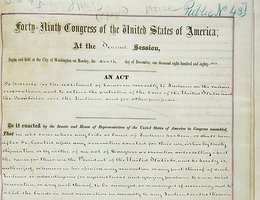 Public No. 43
Forty-Ninth Congress of the United States of America;
At the Second Session,
Begun and held at the City of Washington on Monday, the sixth day of December, one thousand eight hundred and eighty-six
AN ACT
To provide for the allotment of lands in severalty to Indians on the various
reservations, and to extend the protection of the laws of the United States and
the Territories over the Indians, and for other purposes.
Be it enacted by the Senate and House of Representatives of the United States of America in Congress assembled,
That in all cases where any tribe or band of Indians has been, or shall here-
after be, located upon any reservation created for their use, either by treaty
stipulation or by virtue of an act of Congress or executive order setting apart
the same for their use, the President of the United States be, and he hereby is,
authorized, whenever in his opinion any reservation or any part thereof of such
Indians is advantageous for agricultural and grazing purposes, to cause said
reservation, or any part thereof, to be surveyed, or resurveyed if necessary, and to
allot the lands in said reservation in severalty to any Indian located thereon